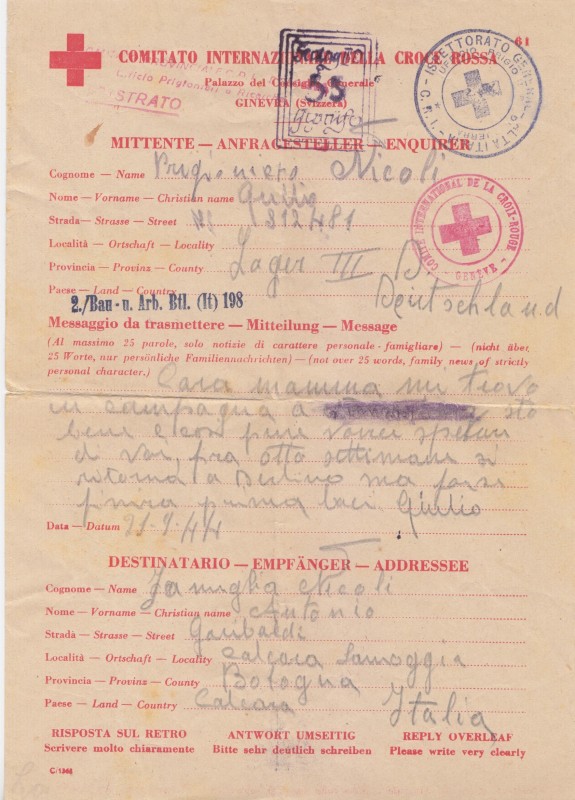 61
COMITATO INTERNAZIONALE DELLA CROCE ROSSA
Palazzo del Consiglio Generale
GINEVRA (Svizzera)
STRATO
55
ISPETTORATO GENERALE ALTA ITALIA - C.R.I.
MITTENTE — ANFRAGESTELLER — ENQUIRER
Cognome — Name Prigioniero Nicoli
Nome — Vorname — Christian name Giulio
Strada — Strasse — Street N 312481
Località — Ortschaft — Locality Lager III D.
Provincia — Provinz — County
Paese — Land — Country Deutschland
COMITÉ INTERNATIONAL DE LA CROIX-ROUGE - GENÈVE -
2./Bau- u. Arb. Btl. (It) 198
Messaggio da trasmettere — Mitteilung — Message
(Al massimo 25 parole, solo notizie di carattere personale-famigliare) — (nicht über
25 Worte, nur persönliche Familiennachrichten) — (not over 25 words, family news of strictly
personal character.)
Cara mamma mi trovo
in campagna a sto
bene e così pure voi
di voi, fra otto settimane si
ritorna a Berlino ma forse
finirà prima baci Giulio
Data — Datum 21-9-44
DESTINATARIO — EMPFÄNGER — ADDRESSEE
Cognome — Name Famiglia Nicoli
Nome — Vorname — Christian name Antonio
Stradà — Strasse — Street Garibaldi
Località — Ortschaft — Locality Calcara Samoggia
Provincia — Provinz — County Bologna
Paese — Land — Country Calcara Italia
RISPOSTA SUL RETRO ANTWORT UMSEITIG REPLY OVERLEAF
Scrivere molto chiaramente Bitte sehr deutlich schreiben Please write very clearly
C/1346